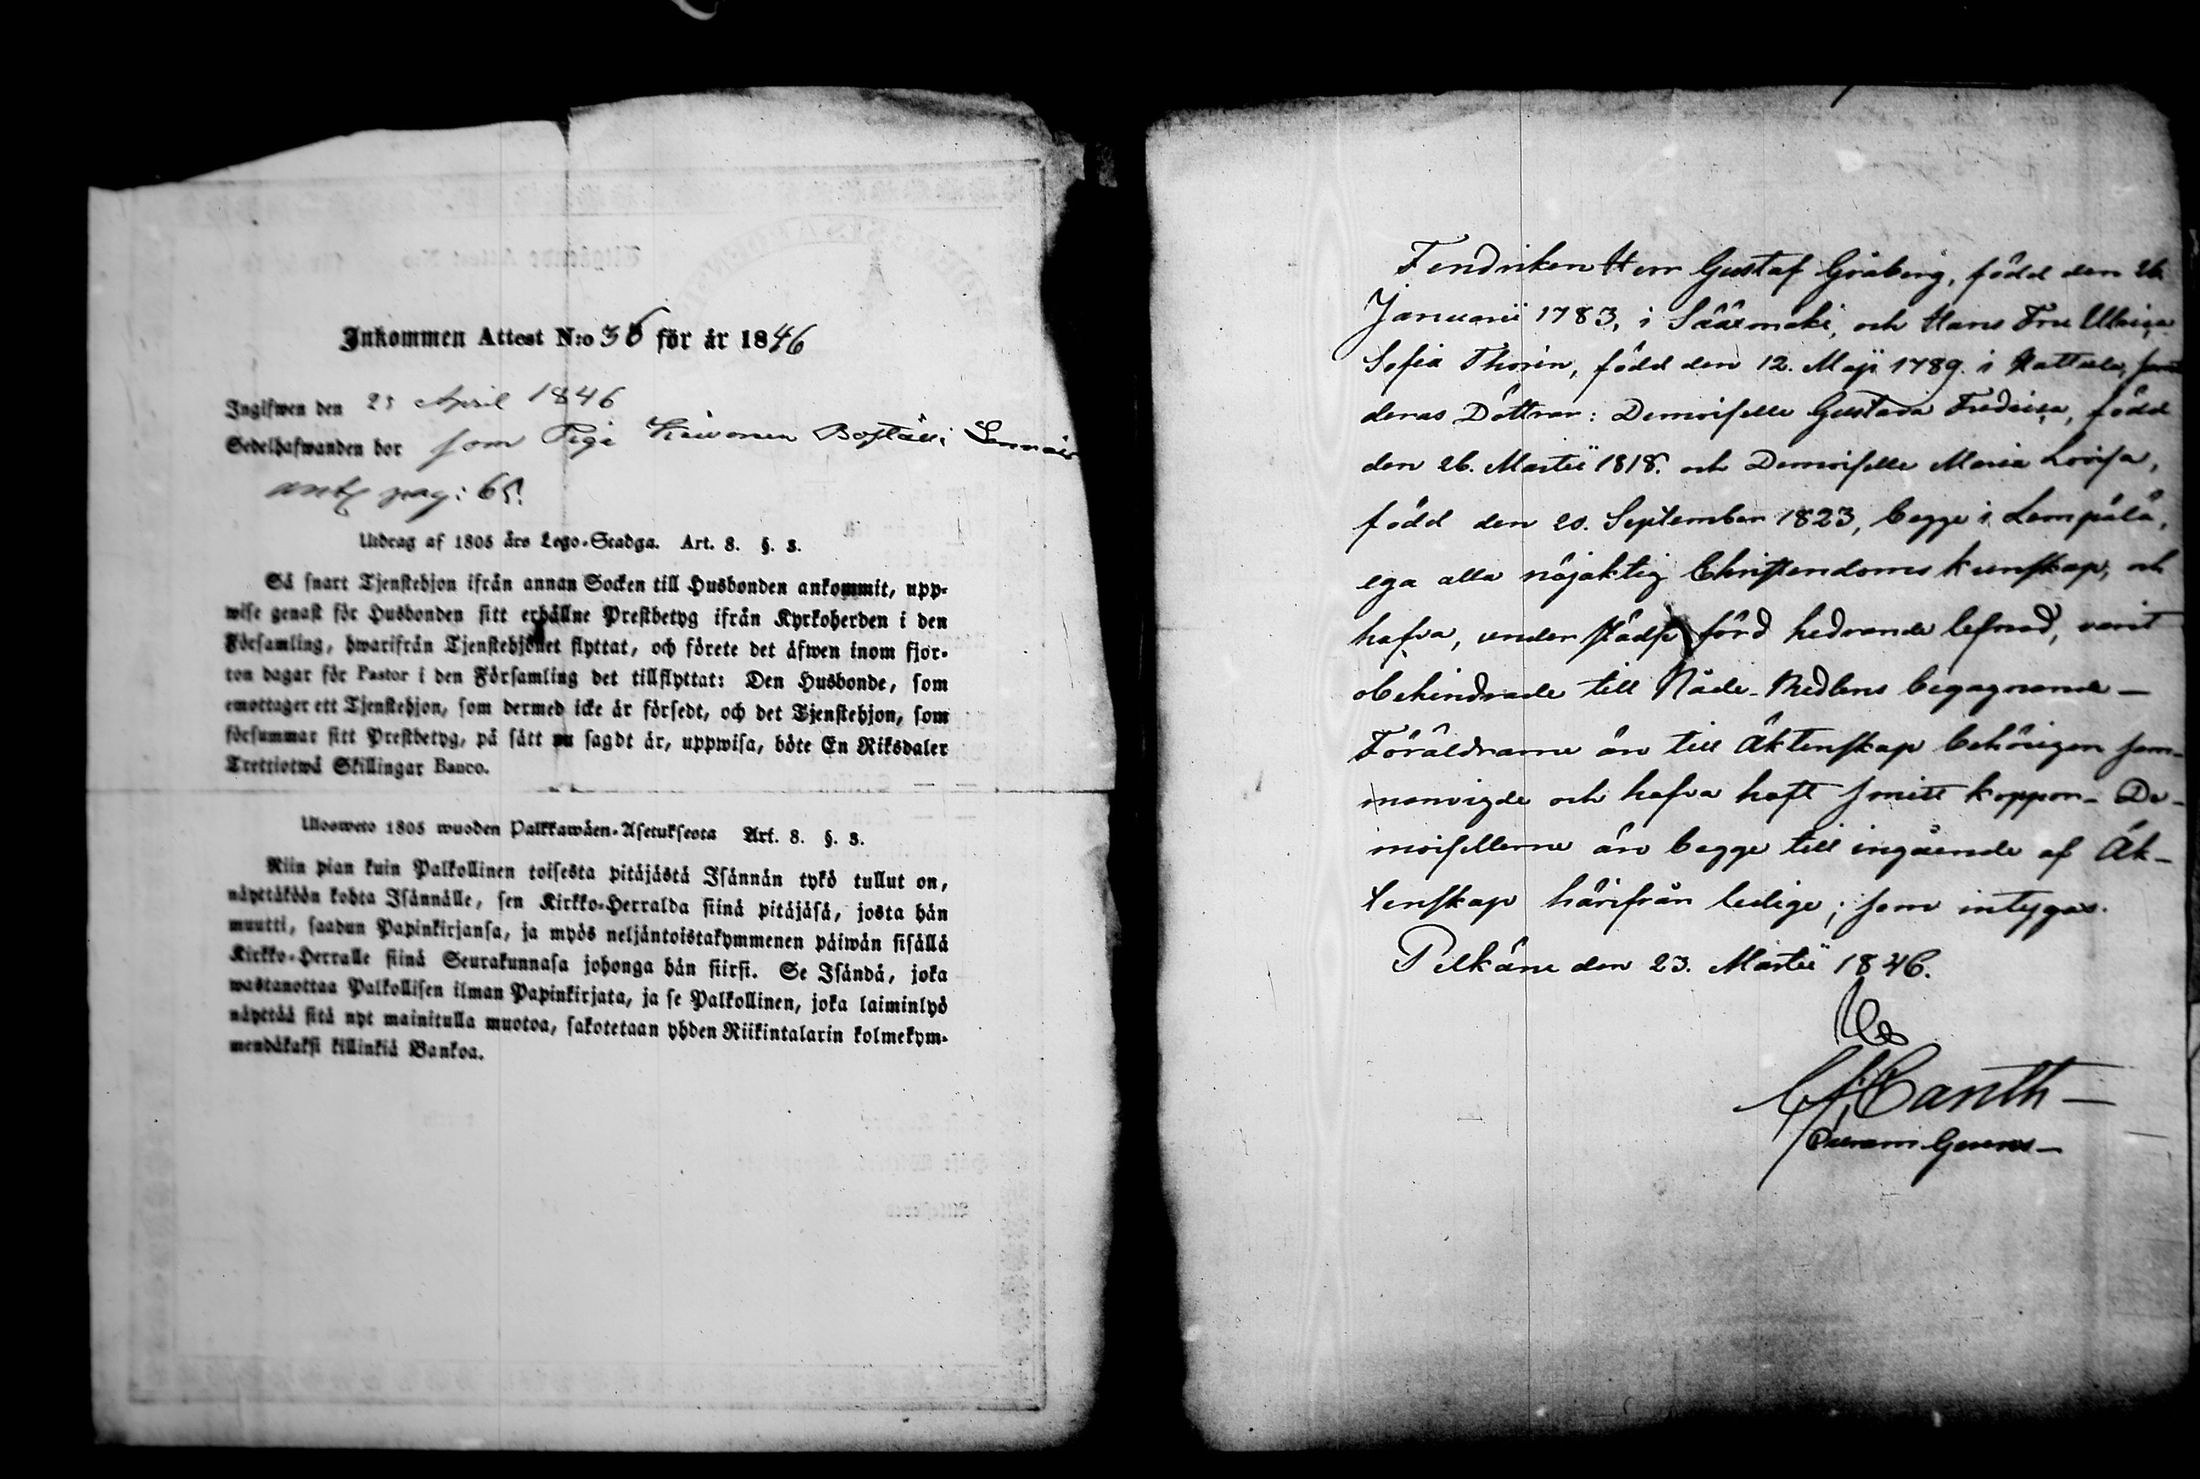 Inkommen Attest N:o 36 för år 1846
Ingifwen den 25 April 1846
Sedelhafwanden bor som Piga Boställe
antz pag: 65.
Utdrag af 1805 års Lego-Stadga. Art. 8. §. 3.
Så snart Tjenstehjon ifrån annan Socken till Husbonden ankommit, upp-
wise genast för Husbonden sitt erhållne Prestbetyg ifrån Kyrkoherden i den
Församling, hwarifrån Tjenstehjonet flyttat, och förete det äfwen inom fjor-
ton dagar för Pastor i den Församling det tillflyttat: Den Husbonde, som
emottager ett Tjenstehjon, som dermed icke är försedt, och det Tjenstehjon, som
försummar sitt Prestbetyg, på sätt nu sagdt är, uppwisa, böte En Riksdaler
Trettiotwå Skillingar Banco.
Ulosweto 1805 wuoden Palkkawäen-Asetuksesta Art. 8. §. 3.
Niin pian kuin Palkollinen toisesta pitäjästä Isännän tykö tullut on,
näyttäköön kohta Isännälle, sen Kirkko-Herralda siinä pitäjäsä, josta hän
muutti, saadun Papinkirjansa, ja myös neljäntoistakymmenen päiwän sisällä
Kirkko-Herralle siinä Seurakunnasa johonga hän siirsi. Se Isändä, joka
wastanottaa Palkollisen ilman Papinkirjata, ja se Palkollinen, joka laiminlyö
näyttää sitä nyt mainitulla muotoa, sakotetaan yhden Riikintalarin kolmekym-
mendäkaksi killinkiä Bankoa.
Fendriken Herr Gustaf Gråberg, född den 26
Januarii 1783, i Sääxmäki, och Hans Fru Ulrica
Sofia Thorén, född den 12. Maji 1789. i Hattula, samt
deras Döttrar: Demoiselle Gustava Fredrica, född
den 26. Martii 1818. och Demoiselle Maria Lovisa,
född den 20. September 1823, begge i Lempälä,
ega alla nöjaktig Christendoms kunskap, och
hafva, under städse förd hedrande lefnad, varit
obehindrade till Nåde-Medlens begagnande —
Föräldrarne än till Äktenskap behörigen sam-
manvigde och hafva haft smitt koppor - De-
moisellerne än begge till ingående af Äk-
tenskap härifrån ledige; som intygas.
Pelkäne den 23. Martii 1846.
Canth —